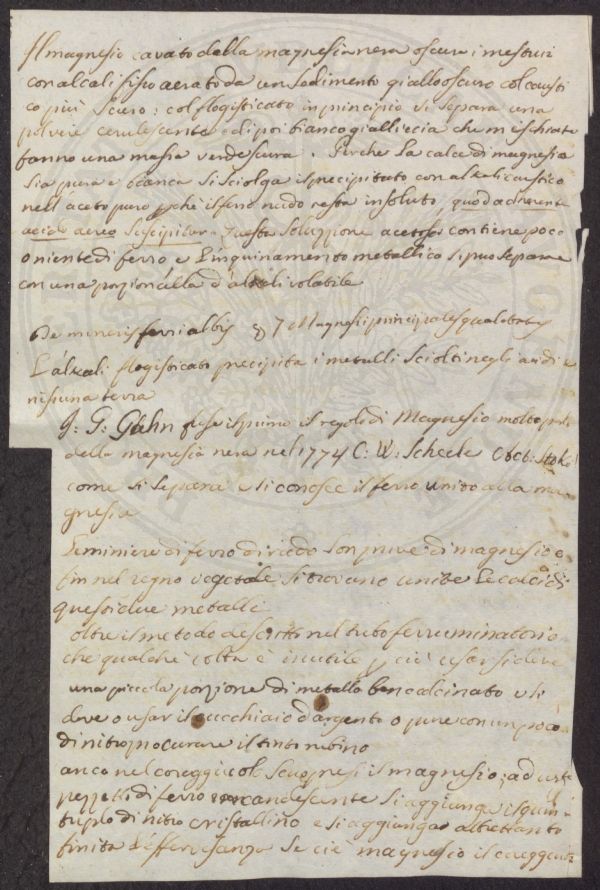 Il magnesio cavato dalla magnesia nera oscura i mestrui
con alcali fisso aerato da un sedimento giallo oscuro col causti
co più scuro: col flogisticato in principio si separa una
polvere cerulescente e di poi bianco gialliccia che mischiate
fanno una massa verde scura. Perche la calce di magnesia
sia pura e bianca si sciolga il precipitato con alkali caustico
nell aceto puro pche il ferro nudo resta insoluto, quod adiuvante
acido aereo suscipitur. Questa soluzione acetosa contiene poco
o niente di ferro e l'inquinamento metallico si puo separare
con una porzioncella d'alkali volatile
De mineris ferri albis § 7 Magnesii principales qualitates
L'alcali flogisticato precipita i metalli sciolti negli acidi e
nissuna terra
J: G: Gahn fuse il primo il regolo di Magnesio
della magnesia nera nel 1774 C: W: Scheele
come si separa e si conosce il ferro unito alla ma
gnesia
Le miniere di ferro di rado son prive di magnesio e
fin nel regno vegetale si trovano unite le calci di
questi due metalli
oltre il metodo descritto nel tubo ferruminatorio
che qualche volta è inutile p ciò usar si deve
una piccola porzione di metallo ben calcinato e si
deve o usar il cucchiaio d'argento o pure con un poco
di nitro procurare il tinto rubino
anco nel coreggiuolo scuopresi il magnesio; ad
pezzetti di ferro incandescente si aggiunga il quin
tuplo di nitro cristallino e si aggiunga altrettanto
finita l'effervesanza se ciè magnesio il